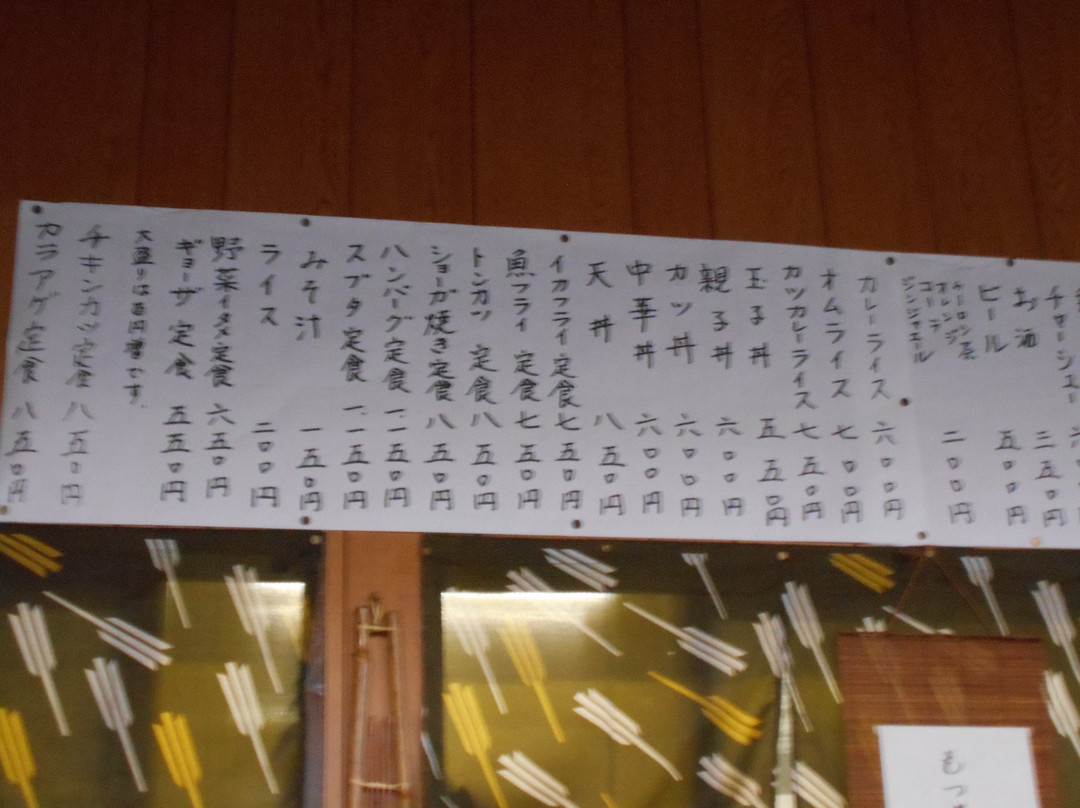 チャーシュー 六
お酒 三五〇円
ビール 五〇〇円
ウーロン茶
オレンジ
コーラ
ジンジャエール
二〇〇円
カレーライス 六〇〇円
オムライス 七〇〇円
カツカレーライス 七五〇円
玉子丼 五五〇円
親子丼 六〇〇円
カツ丼 六〇〇円
中華丼 六〇〇円
天丼 八五〇円
イカフライ定食 七五〇円
魚フライ定食 七五〇円
トンカツ定食 八五〇円
ショーガ焼き定食 八五〇円
ハンバーグ定食 一一五〇円
スブタ定食 一一五〇円
みそ汁 一五〇円
ライス 二〇〇円
野菜イタメ定食 六五〇円
ギョーザ定食 五五〇円
大盛りは百円増です。
チキンカツ定食 八五〇円
カラアゲ定食 八五〇円
もつ